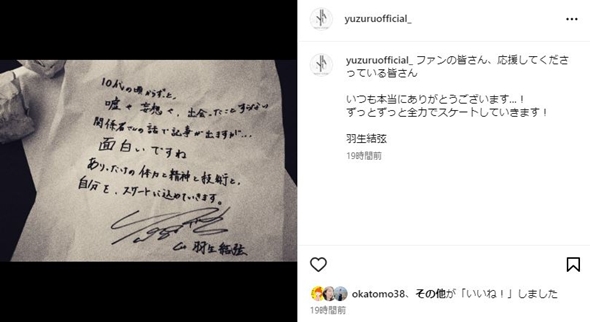 10代の頃からずっと、
嘘や妄想や、出会ったことすらない
関係者での話で記事が出ますが…
面白いですね
ありったけの体力と精神と技術と、
自分を、スケートに込めていきます。
羽生結弦
yuzuruofficial_
yuzuruofficial_ ファンの皆さん、応援してくださ
っている皆さん
いつも本当にありがとうございます…！
ずっとずっと全力でスケートしていきます！
羽生結弦
19時間前
okatomo38、その他が「いいね！」しました
19時間前